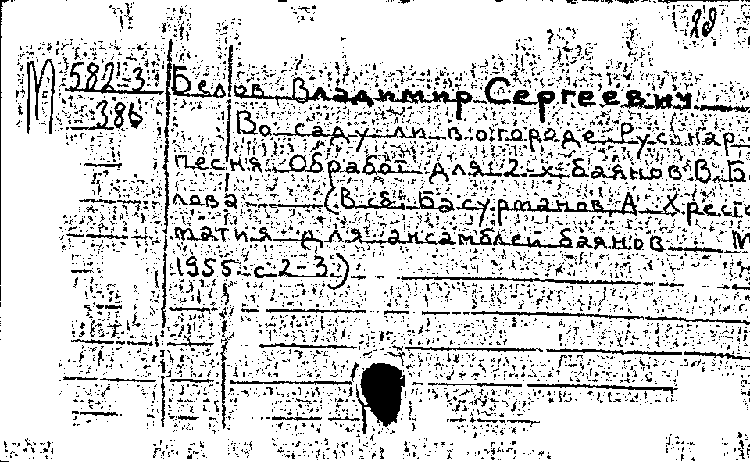 28
М 582-3 Белов Владимир Сергеевич
386 Во саду ли в огороде. Русс. нар.
песня. Обработ. для 2-х баянов В. Б
лова (В сб. Басурманов А. Хресто
матия для ансамблей баянов М
1955 с 2-3)